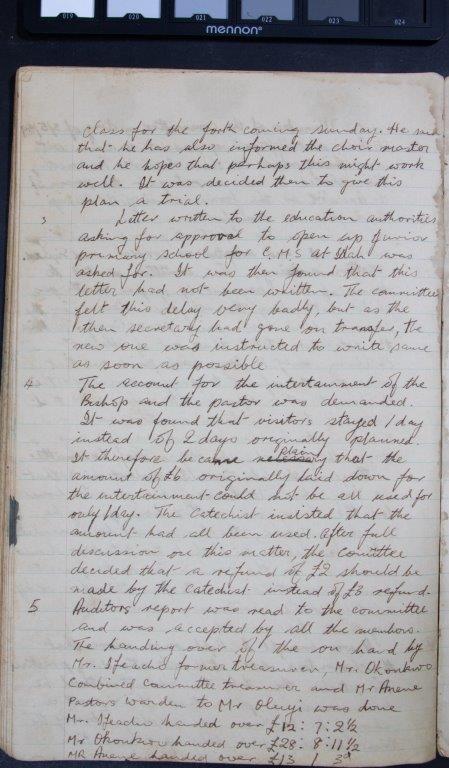 019 020 021 022 023 024
mennon
class for the forth coming Sunday. He
that he has also informed the choir master
and he hopes that perhaps this might work
well. It was decided then to give this
plan a trial.
3 Letter written to the education authorities
asking for approval to open up junior
primary school for C.M.S at was
asked for. It was then found that this
letter had not been written. The committee
felt this delay very badly, but as the
then secretary had gone on transfer, the
new one was instructed to write same
as soon as possible
4 The account for the intertainment of the
Bishop and the pastor was demanded.
It was found that visitors stayed 1 day
instead of 2 days originally planned.
It therefore became plain that the
amount of £6 originally laid down for
the intertainment could not be all used for
only 1 day. The Catechist insisted that the
amount had all been used. After full
discussion on this matter, the Comittee
decided that a refund of £2 should be
made by the Catechist instead of £3 refund.
5 Auditors report was read to the committee
and was accepted by all the members.
The handing over of the on hard by
Mr. Ifeacho former treasurer, Mr. Okonkwo
Combined Committee treasurer and Mr Anene
Pastors warden to Mr was done
Mr. Ifeacho handed over £12 : 7 : 2½
Mr Okonkwo handed over £28 : 8 : 11½
MR Anene handed over £13 1 3